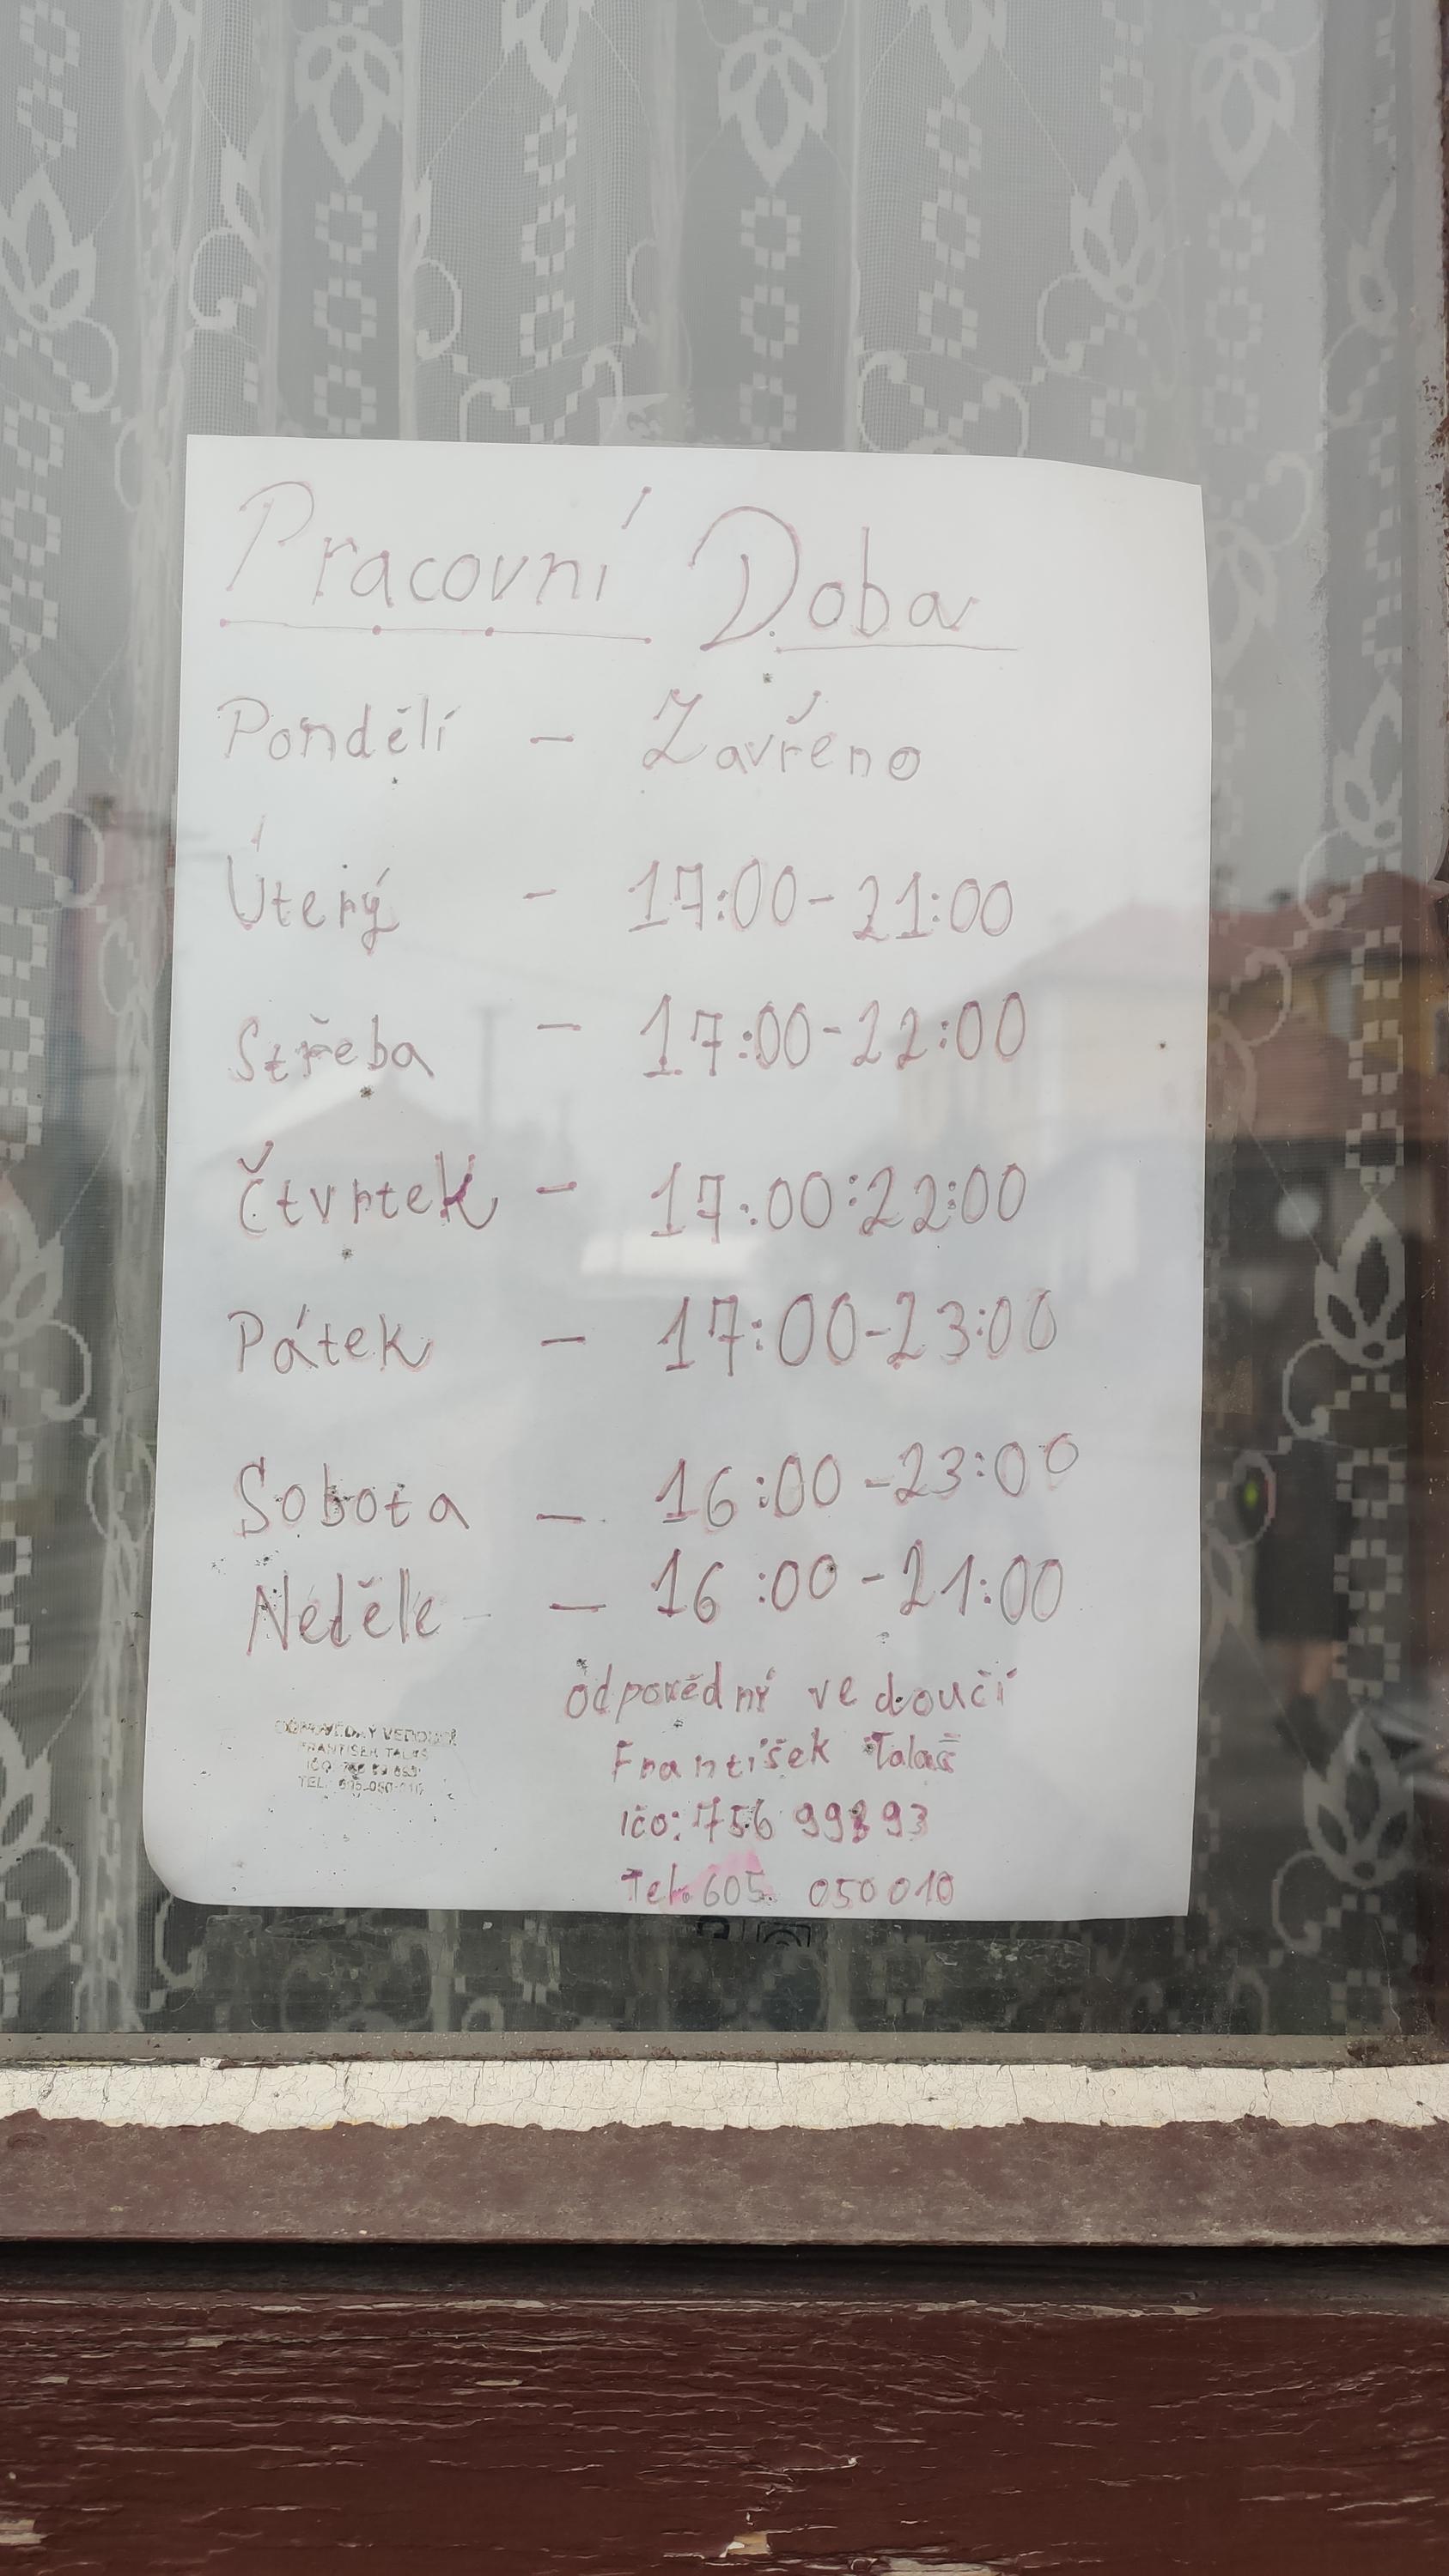 Pracovní Doba
Pondělí - Zavřeno
Úterý - 17:00-21:00
Střeba - 17:00-22:00
Čtvrtek - 17:00:22:00
Pátek - 17:00-23:00
Sobota - 16:00-23:00
Neděle - 16:00-21:00
odpovědný vedoučí
František Talaš
Ičo: 756 99893
Tel. 605. 050010
ODPOVĚDNÝ VEDOUCÍ
FRANTIŠEK TALAŠ
IČO:
TEL.: